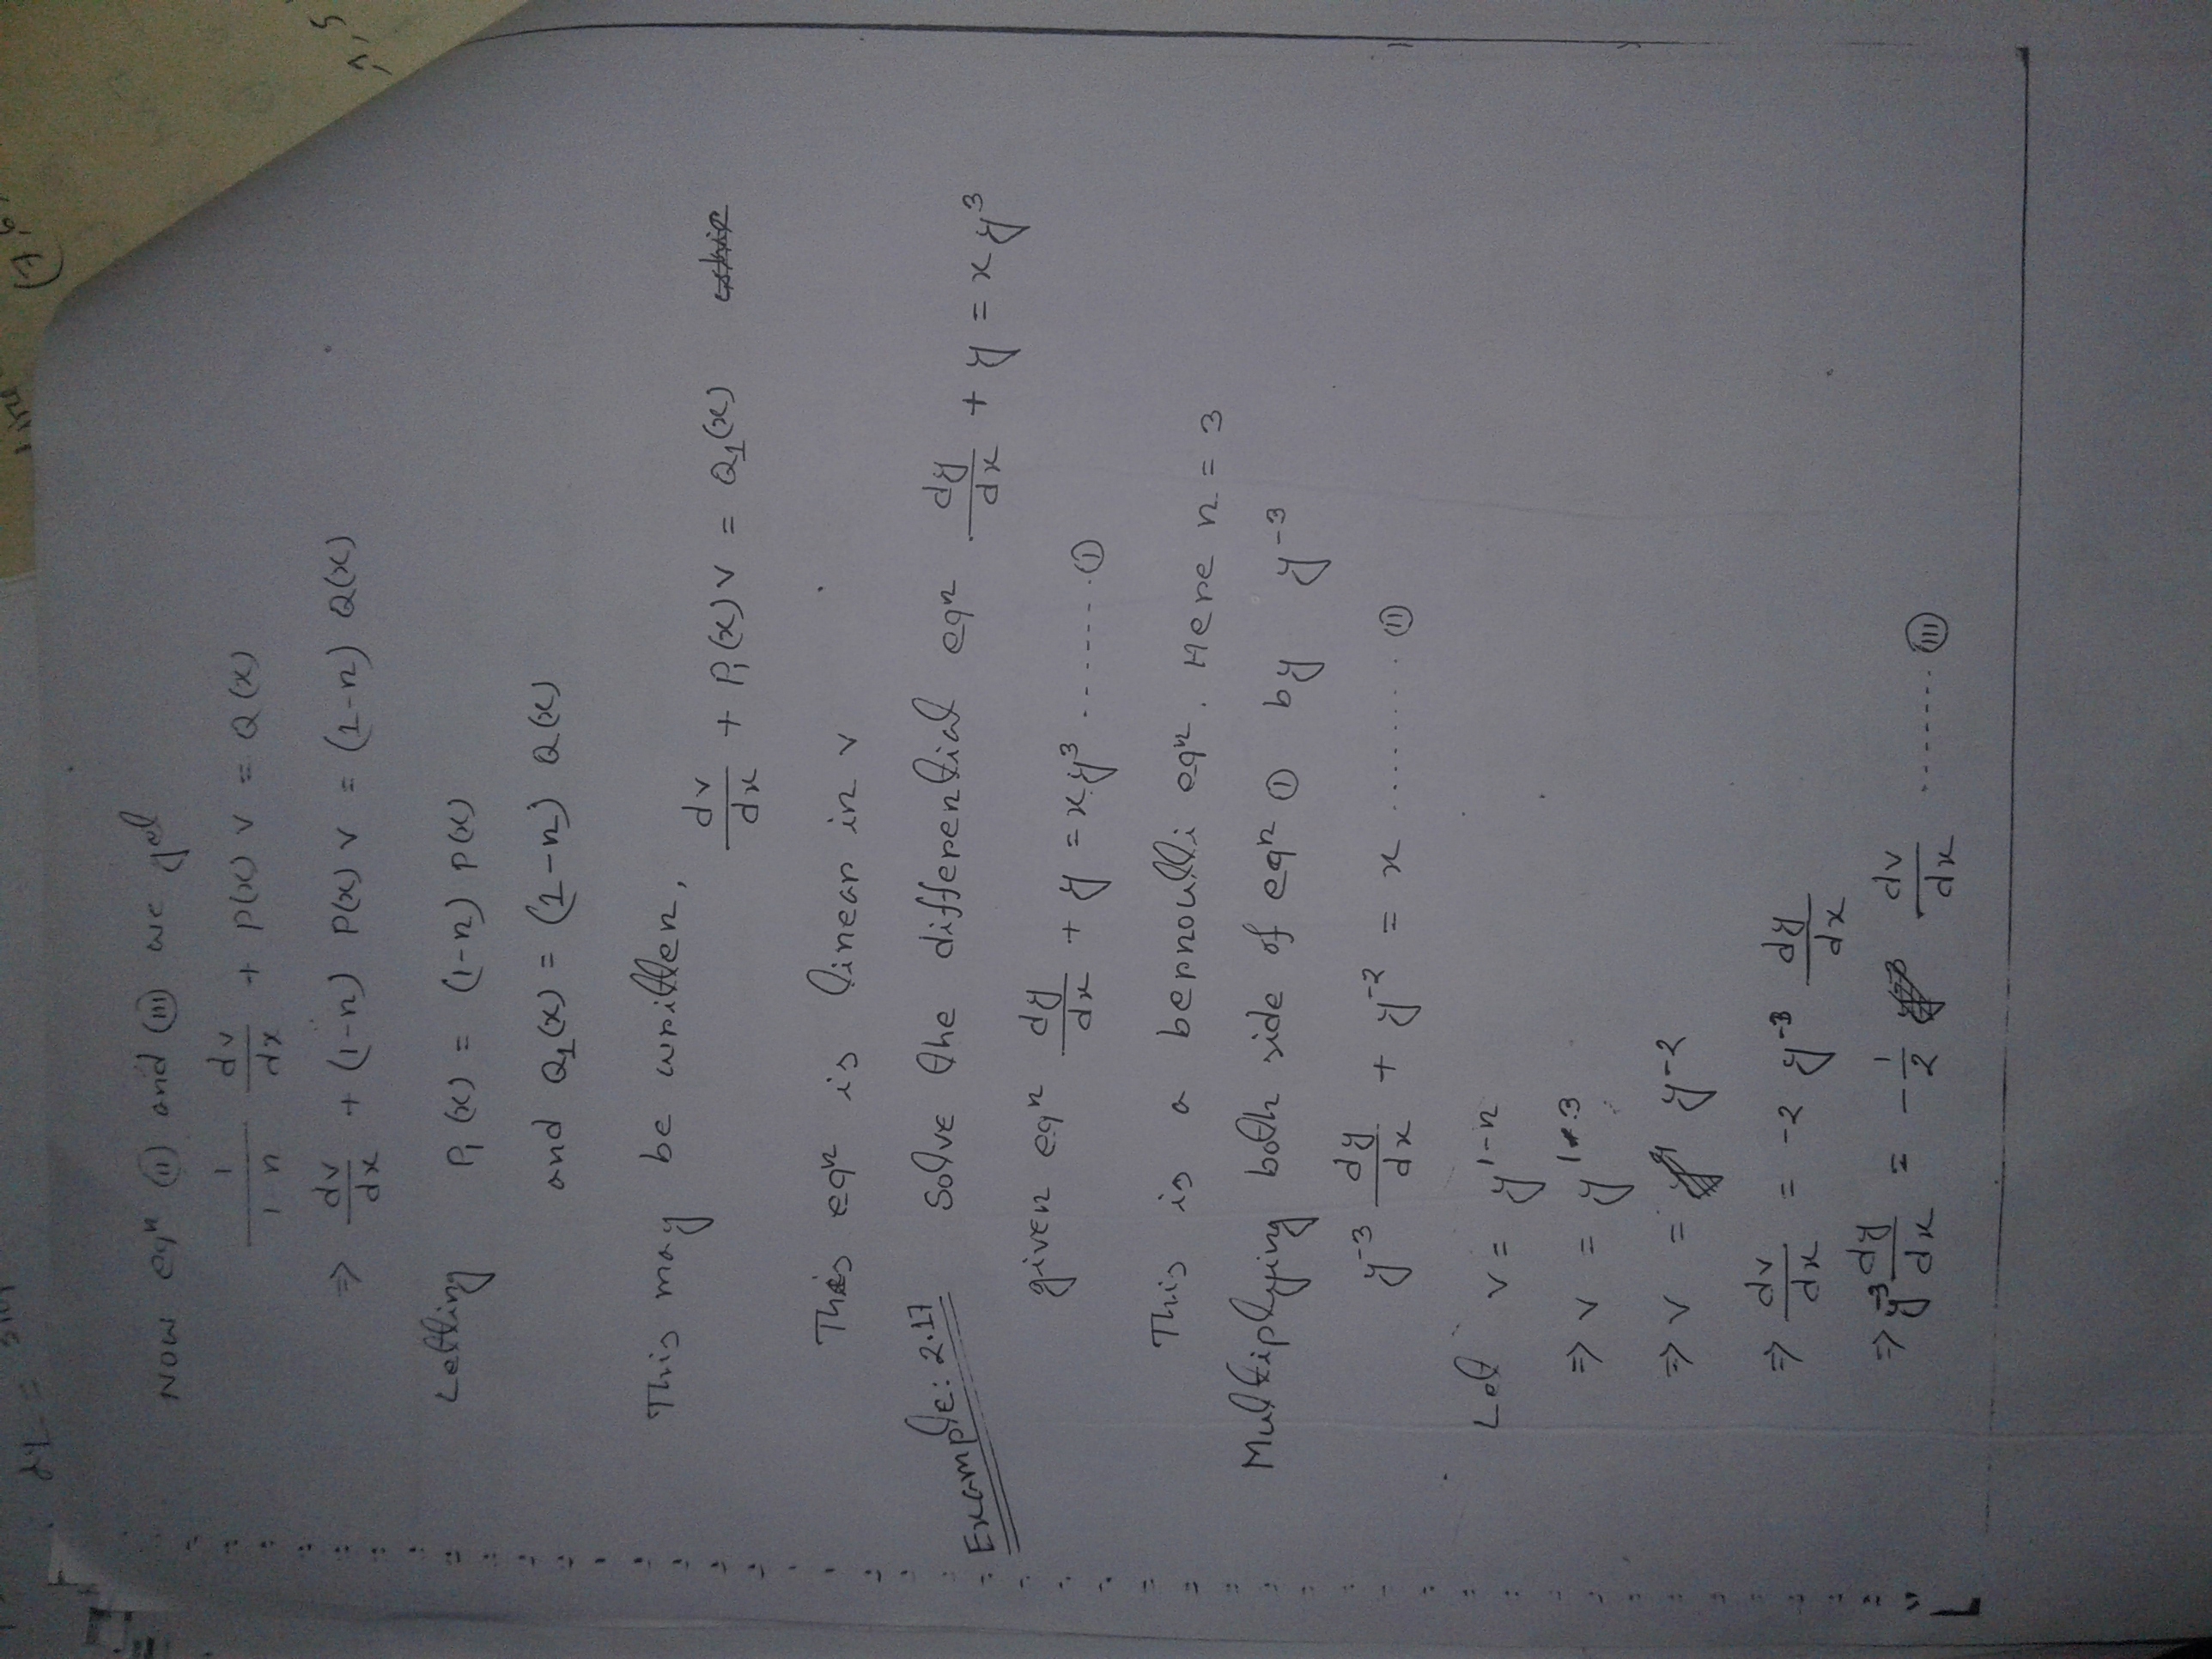 dy =
(7,6,
1,5
Now eqⁿ (ii) and (iii) we get
1/(1-n) dv/dx + P(x) v = Q(x)
⇒ dv/dx + (1-n) P(x) v = (1-n) Q(x)
Letting P₁(x) = (1-n) P(x)
and Q₁(x) = (1-n) Q(x)
This may be written,
dv/dx + P₁(x) v = Q₁(x)
This eqⁿ is linear in v
Example: 2.17 Solve the differential eqⁿ dy/dx + y = xy³
given eqⁿ dy/dx + y = xy³ ....... (i)
This is a bernoulli eqⁿ. Here n = 3
Multiplying both side of eqⁿ (i) by y⁻³
y⁻³ dy/dx + y⁻² = x ........ (ii)
Let v = y¹⁻ⁿ
⇒ v = y¹⁻³
⇒ v = y⁻²
⇒ dv/dx = -2 y⁻³ dy/dx
⇒ y⁻³ dy/dx = -1/2 dv/dx ....... (iii)